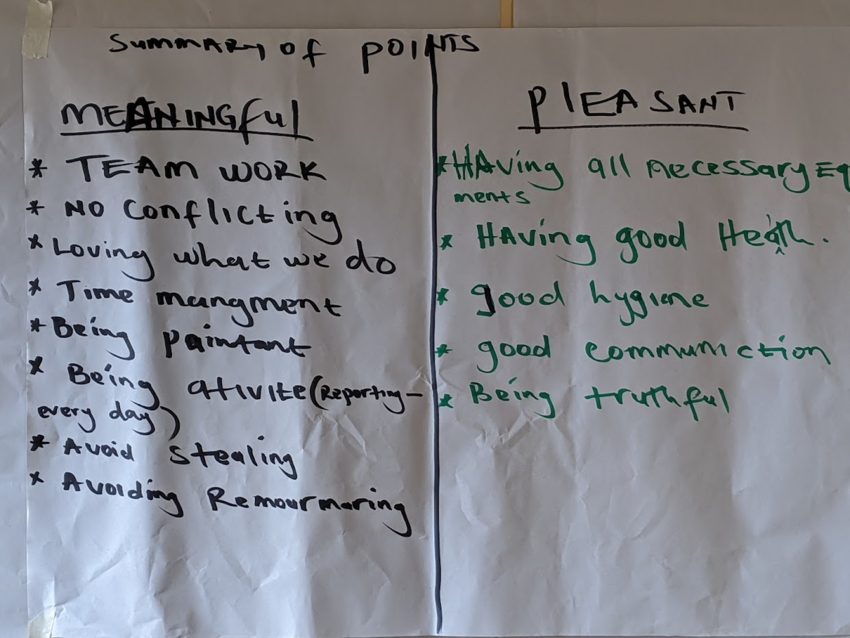 SUMMARY OF POINTS
MEANINGful
* TEAM WORK
* NO Conflicting
* Loving what we do
* Time mangment
* Being paintant
* Being ativite (Reporting-
every day)
* Avoid stealing
* Avoiding Remourmoring
PlEASANT
* HAving all necessary Eq
ments
* HAving good Heath.
* good hygiene
* good communiction
* Being truthful